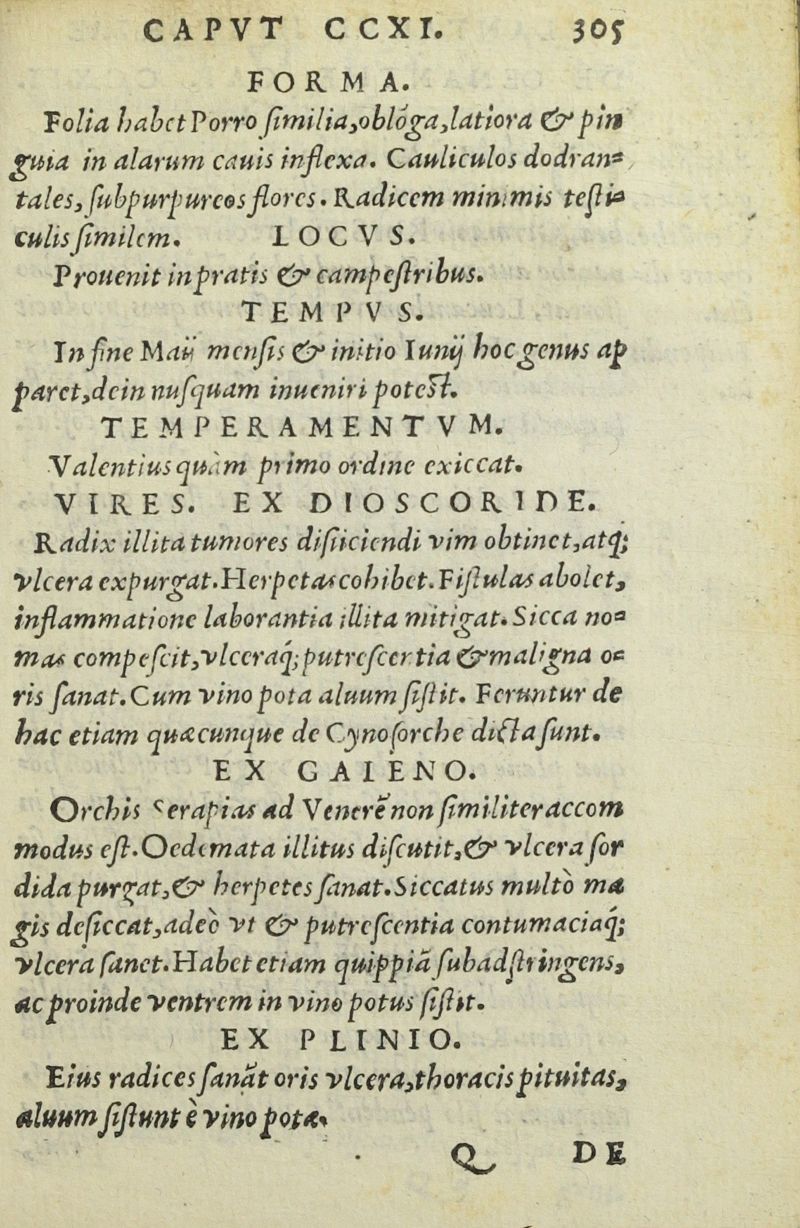 CAPVT CCXI. 305
FORMA.
Folia habet Porro ſimilia, oblõga, latiora & pin
guia in alarum cauis inflexa. Cauliculos dodran=
tales, ſubpurpureos flores. Radicem minimis teſti=
culis ſimilem. LOCVS.
Prouenit in pratis & campeſtribus.
TEMPVS.
In fine Maij menſis & initio Iunij hoc genus ap
paret, dein nuſquam inueniri poteſt.
TEMPERAMENTVM.
Valentius quàm primo ordine exiccat.
VIRES. EX DIOSCORIDE.
Radix illita tumores diſijciendi vim obtinet, atq;
vlcera expurgat. Herpetas cohibet. Fiſtulas abolet,
inflammatione laborantia illita mitigat. Sicca no=
mas compeſcit, vlceraq́; putreſcentia & maligna o=
ris ſanat. Cum vino pota aluum ſiſtit. Feruntur de
hac etiam quæcunque de Cynoſorche dicta ſunt.
EX GALENO.
Orchis Serapias ad Venerẽ non ſimiliter accom
modus eſt. Oedemata illitus diſcutit, & vlcera ſor
dida purgat, & herpetes ſanat. Siccatus multò ma
gis deſiccat, adeò vt & putreſcentia contumaciaq́;
vlcera ſanet. Habet etiam quippiã ſubadſtringens,
ac proinde ventrem in vino potus ſiſtit.
EX PLINIO.
Eius radices ſanãt oris vlcera, thoracis pituitas,
aluum ſiſtunt è vino potæ.
Q DE